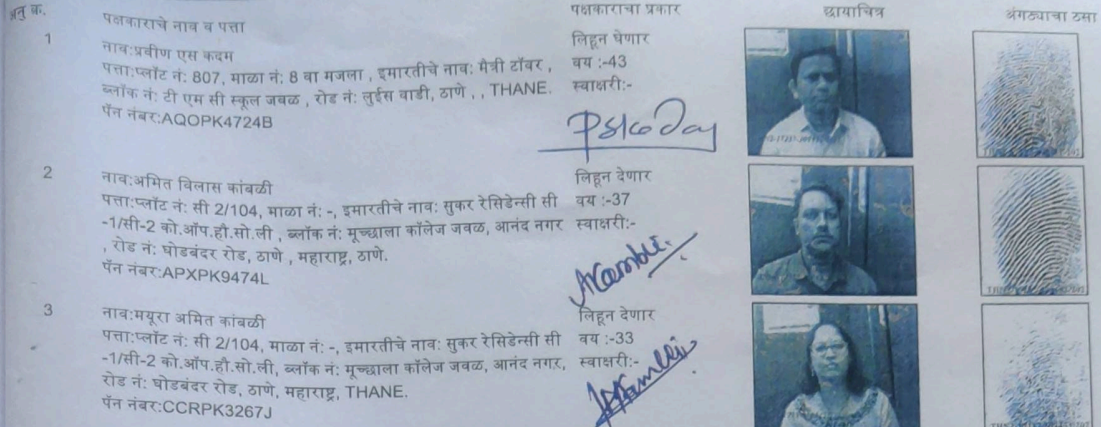 अनु क्र. पक्षकाराचे नाव व पत्ता पक्षकाराचा प्रकार छायाचित्र अंगठ्याचा ठसा
1 नाव:प्रवीण एस कदम
पत्ता:प्लॉट नं: 807, माळा नं: 8 वा मजला , इमारतीचे नाव: मैत्री टॉवर ,
ब्लॉक नं: टी एम सी स्कूल जवळ , रोड नं: लुईस वाडी, ठाणे , , THANE.
पॅन नंबर:AQOPK4724B
लिहून घेणार
वय :-43
स्वाक्षरी:-
2 नाव:अमित विलास कांबळी
पत्ता:प्लॉट नं: सी 2/104, माळा नं: -, इमारतीचे नाव: सुकर रेसिडेन्सी सी
-1/सी-2 को.ऑप.हौ.सो.ली , ब्लॉक नं: मूच्छाला कॉलेज जवळ, आनंद नगर
, रोड नं: घोडबंदर रोड, ठाणे , महाराष्ट्र, ठाणे.
पॅन नंबर:APXPK9474L
लिहून देणार
वय :-37
स्वाक्षरी:-
3 नाव:मयूरा अमित कांबळी
पत्ता:प्लॉट नं: सी 2/104, माळा नं: -, इमारतीचे नाव: सुकर रेसिडेन्सी सी
-1/सी-2 को.ऑप.हौ.सो.ली, ब्लॉक नं: मूच्छाला कॉलेज जवळ, आनंद नगर,
रोड नं: घोडबंदर रोड, ठाणे, महाराष्ट्र, THANE.
पॅन नंबर:CCRPK3267J
लिहून देणार
वय :-33
स्वाक्षरी:-